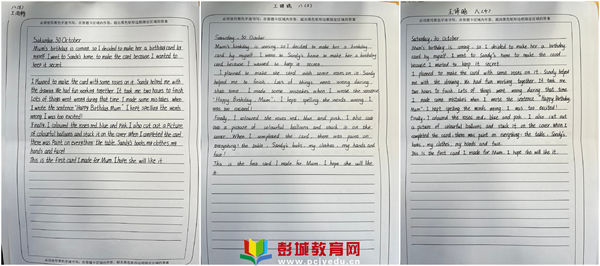 八(5)
Saturday 30 October
Mum's birthday is coming, so I decided to make her a birthday card by
myself. I went to Sandy's home to make the card because I wanted to
keep it secret.
I planned to make the card with some roses on it. Sandy helped me with
the drawing. We had fun working together. It took me two hours to finish.
Lots of things went wrong during that time. I made some mistakes when
I wrote the sentence "Happy Birthday, Mum". I kept spelling the words
wrong. I was too excited!
Finally, I coloured the roses red and blue and pink. I also cut out a picture
of colourful balloons and stuck it on the cover. When I completed the card,
there was paint on everything: the table, Sandy's books, my clothes, my
hands and face!
This is the first card I made for Mum. I hope she will like it.
八(5)
Saturday 30 October
Mum's birthday is coming, so I decided to make her a birthday
card by myself. I went to Sandy's home to make her a birthday
card because I wanted to keep it secret.
I planned to make the card with some roses on it. Sandy
helped me to finish. Lots of things went wrong during
that time. I made some mistakes when I wrote the sentence
"Happy Birthday, Mum". I kept spelling the words wrong. I
was too excited!
Finally, I coloured the roses red, blue and pink. I also
cut out a picture of colourful balloons and stuck it on the
cover. When I completed the card, there was paint on
everything: the table, Sandy's books, my clothes, my hands and
face!
This is the first card I made for Mum. I hope she will like
it.
Saturday, 30 October
Mum's birthday is coming, so I decided to make her a birthday
card by myself. I went to Sandy's home to make the card,
because I wanted to keep it secret.
I planned to make the card with some roses on it. Sandy helped
me with the drawing. We had fun working together. It took me
two hours to finish. Lots of things went wrong during that time.
I made some mistakes when I wrote the sentence "Happy Birthday,
Mum". I kept spelling the words wrong. I was too excited!
Finally, I coloured the roses red, blue and pink. I also cut out
a picture of colourful balloons and stuck it on the cover. When I
completed the card, there was paint on everything: the table, Sandy's
books, my clothes, my hands and face.
This is the first card I made for Mum. I hope she will like it.
彭城教育网
www.pcjyedu.cn